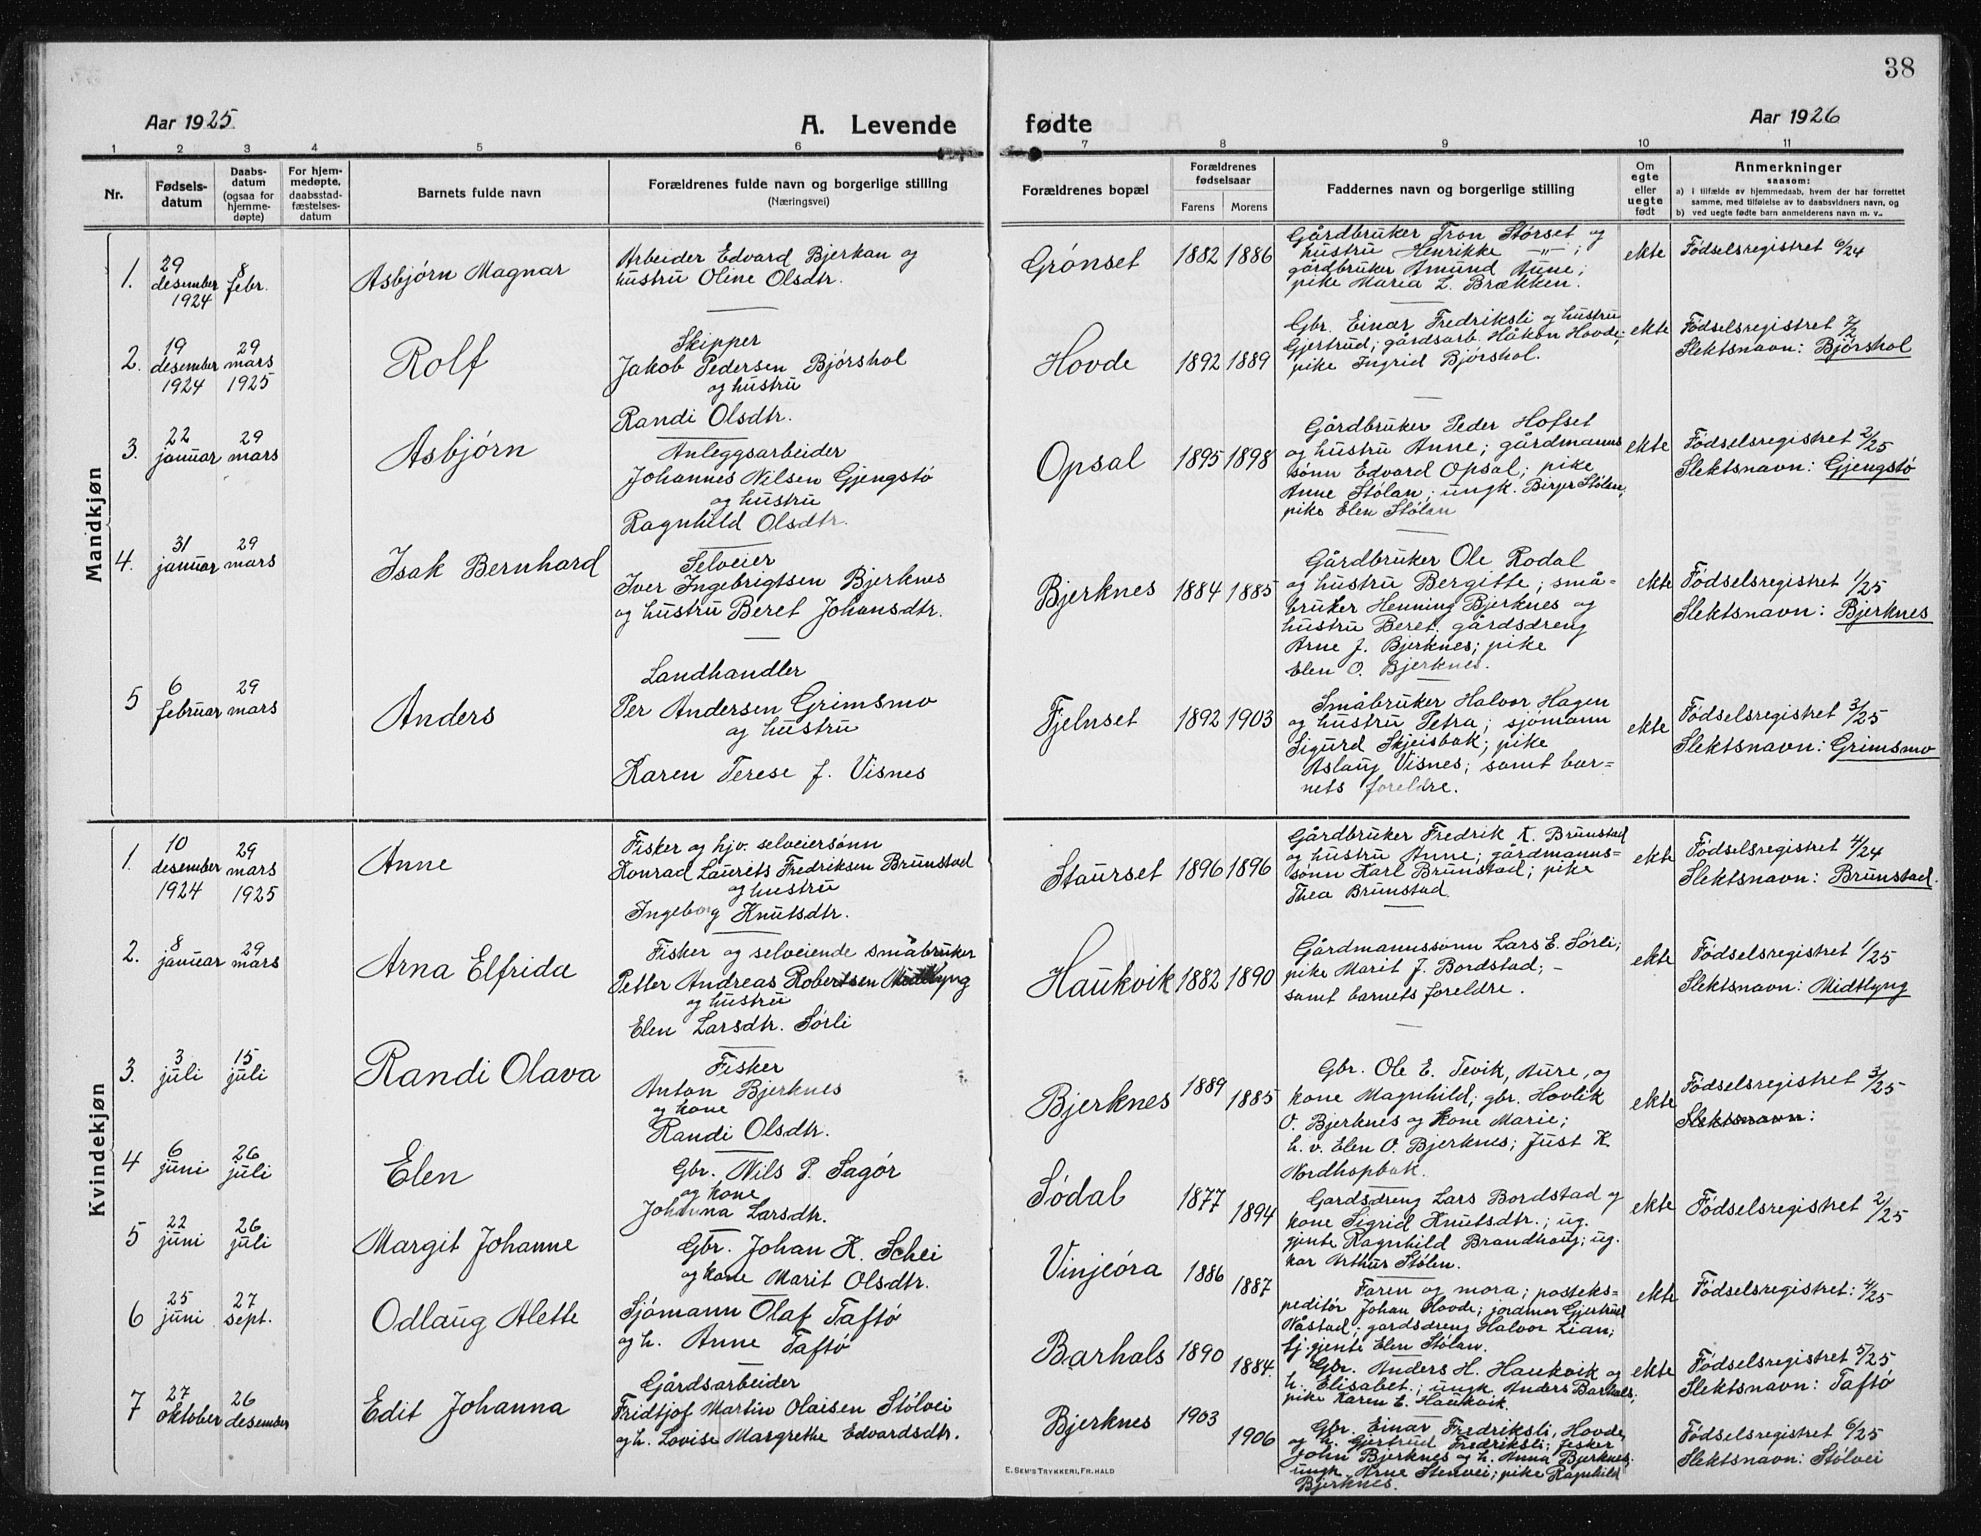 38
Aar 1925.
A. Levende
fødte
Aar 1926
1 2 3 4 5 6 7 8 9 10 11
Nr.
Fødsels-
datum
Daabs-
datum
(ogsaa for
hjemme-
døpte)
For hjem-
medøpte,
daabsstad-
fæstelses-
datum
Barnets fulde navn
Forældrenes fulde navn og borgerlige stilling
(Næringsvei)
Forældrenes bopæl
Forældrenes
fødselsaar
Farens Morens
Faddernes navn og borgerlige stilling
Om
egte
eller
uegte
født
Anmerkninger
saasom:
a) i tilfælde av hjemmedaab, hvem der har forrettet
samme, med tilføielse av to daabsvidners navn, og
b) ved uegte fødte barn anmelderens navn m. v..
Mandkjøn
1.
29
desember
1924
8
febr.
Asbjørn Magnar
Arbeider Edvard Bjerkan og
hustru Oline Olsdtr.
Grønset
1882 1886
Gårdbruker Tron Størset og
hustru Henrikke —"— ;
gårdbruker Amund Aune;
pike Maria L. Brækken.
ekte
Fødselsregistret 6/24
2.
19
desember
1924
29
mars
1925
Rolf
Skipper
Jakob Pedersen Bjørshol
og hustru
Randi Olsdtr.
Hovde
1892 1889
Gbr. Einar Fredriksli og hustru
Gjertrud; gårdsarb. Håkon Hovde;
pike Ingrid Bjørshol.
ekte
Fødselsregistret 7/2
Slektsnavn: Bjørshol
3.
22
januar
29
mars
Asbjørn
Anleggsarbeider
Johannes Nilsen Gjengstø
og hustru
Ragnhild Olsdtr.
Opsal
1895 1898
Gårdbruker Peder Hofset
og hustru Anne; gårdmanns
sønn Edvard Opsal; pike
Anne Stølan; ungk. Birger Stølen,
pike Elen Stølan
ekte
Fødselsregistret 2/25
Slektsnavn: Gjengstø
4.
31
januar
29
mars
Isak Bernhard
Selveier
Iver Ingebrigtsen Bjerknes
og hustru Beret Johansdtr.
Bjerknes
1884 1885
Gårdbruker Ole Rodal
og hustru Bergitte; små-
bruker Henning Bjerknes og
hustru Beret. gårdsdreng
Arne J. Bjerknes; pike
Elen O. Bjerknes.
ekte
Fødselsregistret 1/25
Slektsnavn: Bjerknes
5
6
februar
29
mars
Anders
Landhandler
Per Andersen Grimsmo
og hustru
Karen Terese J. Visnes
Fjelnset
1892 1903
Småbruker Halvor Hagen
og hustru Petra; sjømann
Sigurd Skjeisbak; pike
Aslaug Visnes; samt bar-
nets foreldre.
ekte
Fødselsregistret 3/25
Slektsnavn: Grimsmo
Kvindekjøn
1.
10
desember
1924
29
mars
1925
Anne
Fisker og hjv. selveiersønn
Konrad Laurits Fredriksen Brunstad
og hustru
Ingeborg Knutsdtr.
Staurset
1896 1896
Gårdbruker Fredrik K. Brunstad
og hustru Anne; gårdmanns-
sønn Karl Brunstad; pike
Thea Brunstad.
ekte
Fødselsregistret 4/24
Slektsnavn: Brunstad.
2.
8
januar
29
mars
Arna Elfrida
Fisker og selveiende småbruker
Petter Andreas Robertsen Midtlyng
og hustru
Elen Larsdtr. Sørli
Haukvik
1882 1890
Gårdmannssønn Lars E. Sørli;
pike Marit J. Bordstad; –
samt barnets foreldre.
ekte
Fødselsregistret 1/25
Slektsnavn: Midtlyng
3.
3
juli
15
juli
Randi Olava
Fisker
Anton Bjerknes
og kone
Randi Olsdtr.
Bjerknes
1889 1885
Gbr. Ole E. Tevik, Aure, og
kone Magnhild; gbr. Hovlik
O. Bjerknes og kone Marie;
h. v. Elen O. Bjerknes; Just K.
Nordhopbak.
ekte
Fødselsregistret 3/25
Slektsnavn:
4
6
juni
26
juli
Elen
Gbr. Nils P. Sagør
og kone
Johanna Larsdtr.
Sødal
1877 1894
Gardsdreng Lars Bordstad og
kone Sigrid Knutsdtr.; ug.
gjente Ragnhild Brandhaug; ug.
kar Arthur Stølen.
ekte
Fødselsregistret 2/25
5
22
juni
26
juli
Margit Johanne
Gbr. Johan K. Schei
og kone Marit Olsdtr.
Vinjeøra
1886 1887
Faren og mora; posteks-
peditør Johan Hovde; jordmor Gjertrud
Våstad; gardsdreng Halvor Lian;
tj. gjente Elen Stølan.
ekte
Fødselsregistret: 4/25
6
25
juni
27
sept.
Odlaug Alette
Sjømann Olaf Taftø
og h. Anne Taftø
Barhals
1890 1884.
Gbr. Anders H. Haukvik og
h. Elisabet; ungk. Anders Barhals;
pike Karen E. Haukvik.
ekte
Fødselsregistret 5/25
Slektsnavn: Taftø
7
27
oktober
26
desember
Edit Johanna
Gårdsarbeider
Fridtjof Martin Olaisen Stølvei
og h. Lovise Margrethe Edvardsdtr.
Bjerknes
1903 1906
Gbr. Einar Fredriksli, Hovde
og h. Gjertrud Fredriksli; fisker
John Bjerknes og h. Anna Bjerknes.
ungk. Arne Stenvei; pike Ragnhild
Bjerknes.
Fødselsregistret 6/25
Slektsnavn: Stølvei
E. Sem's Trykkeri, Fr.hald